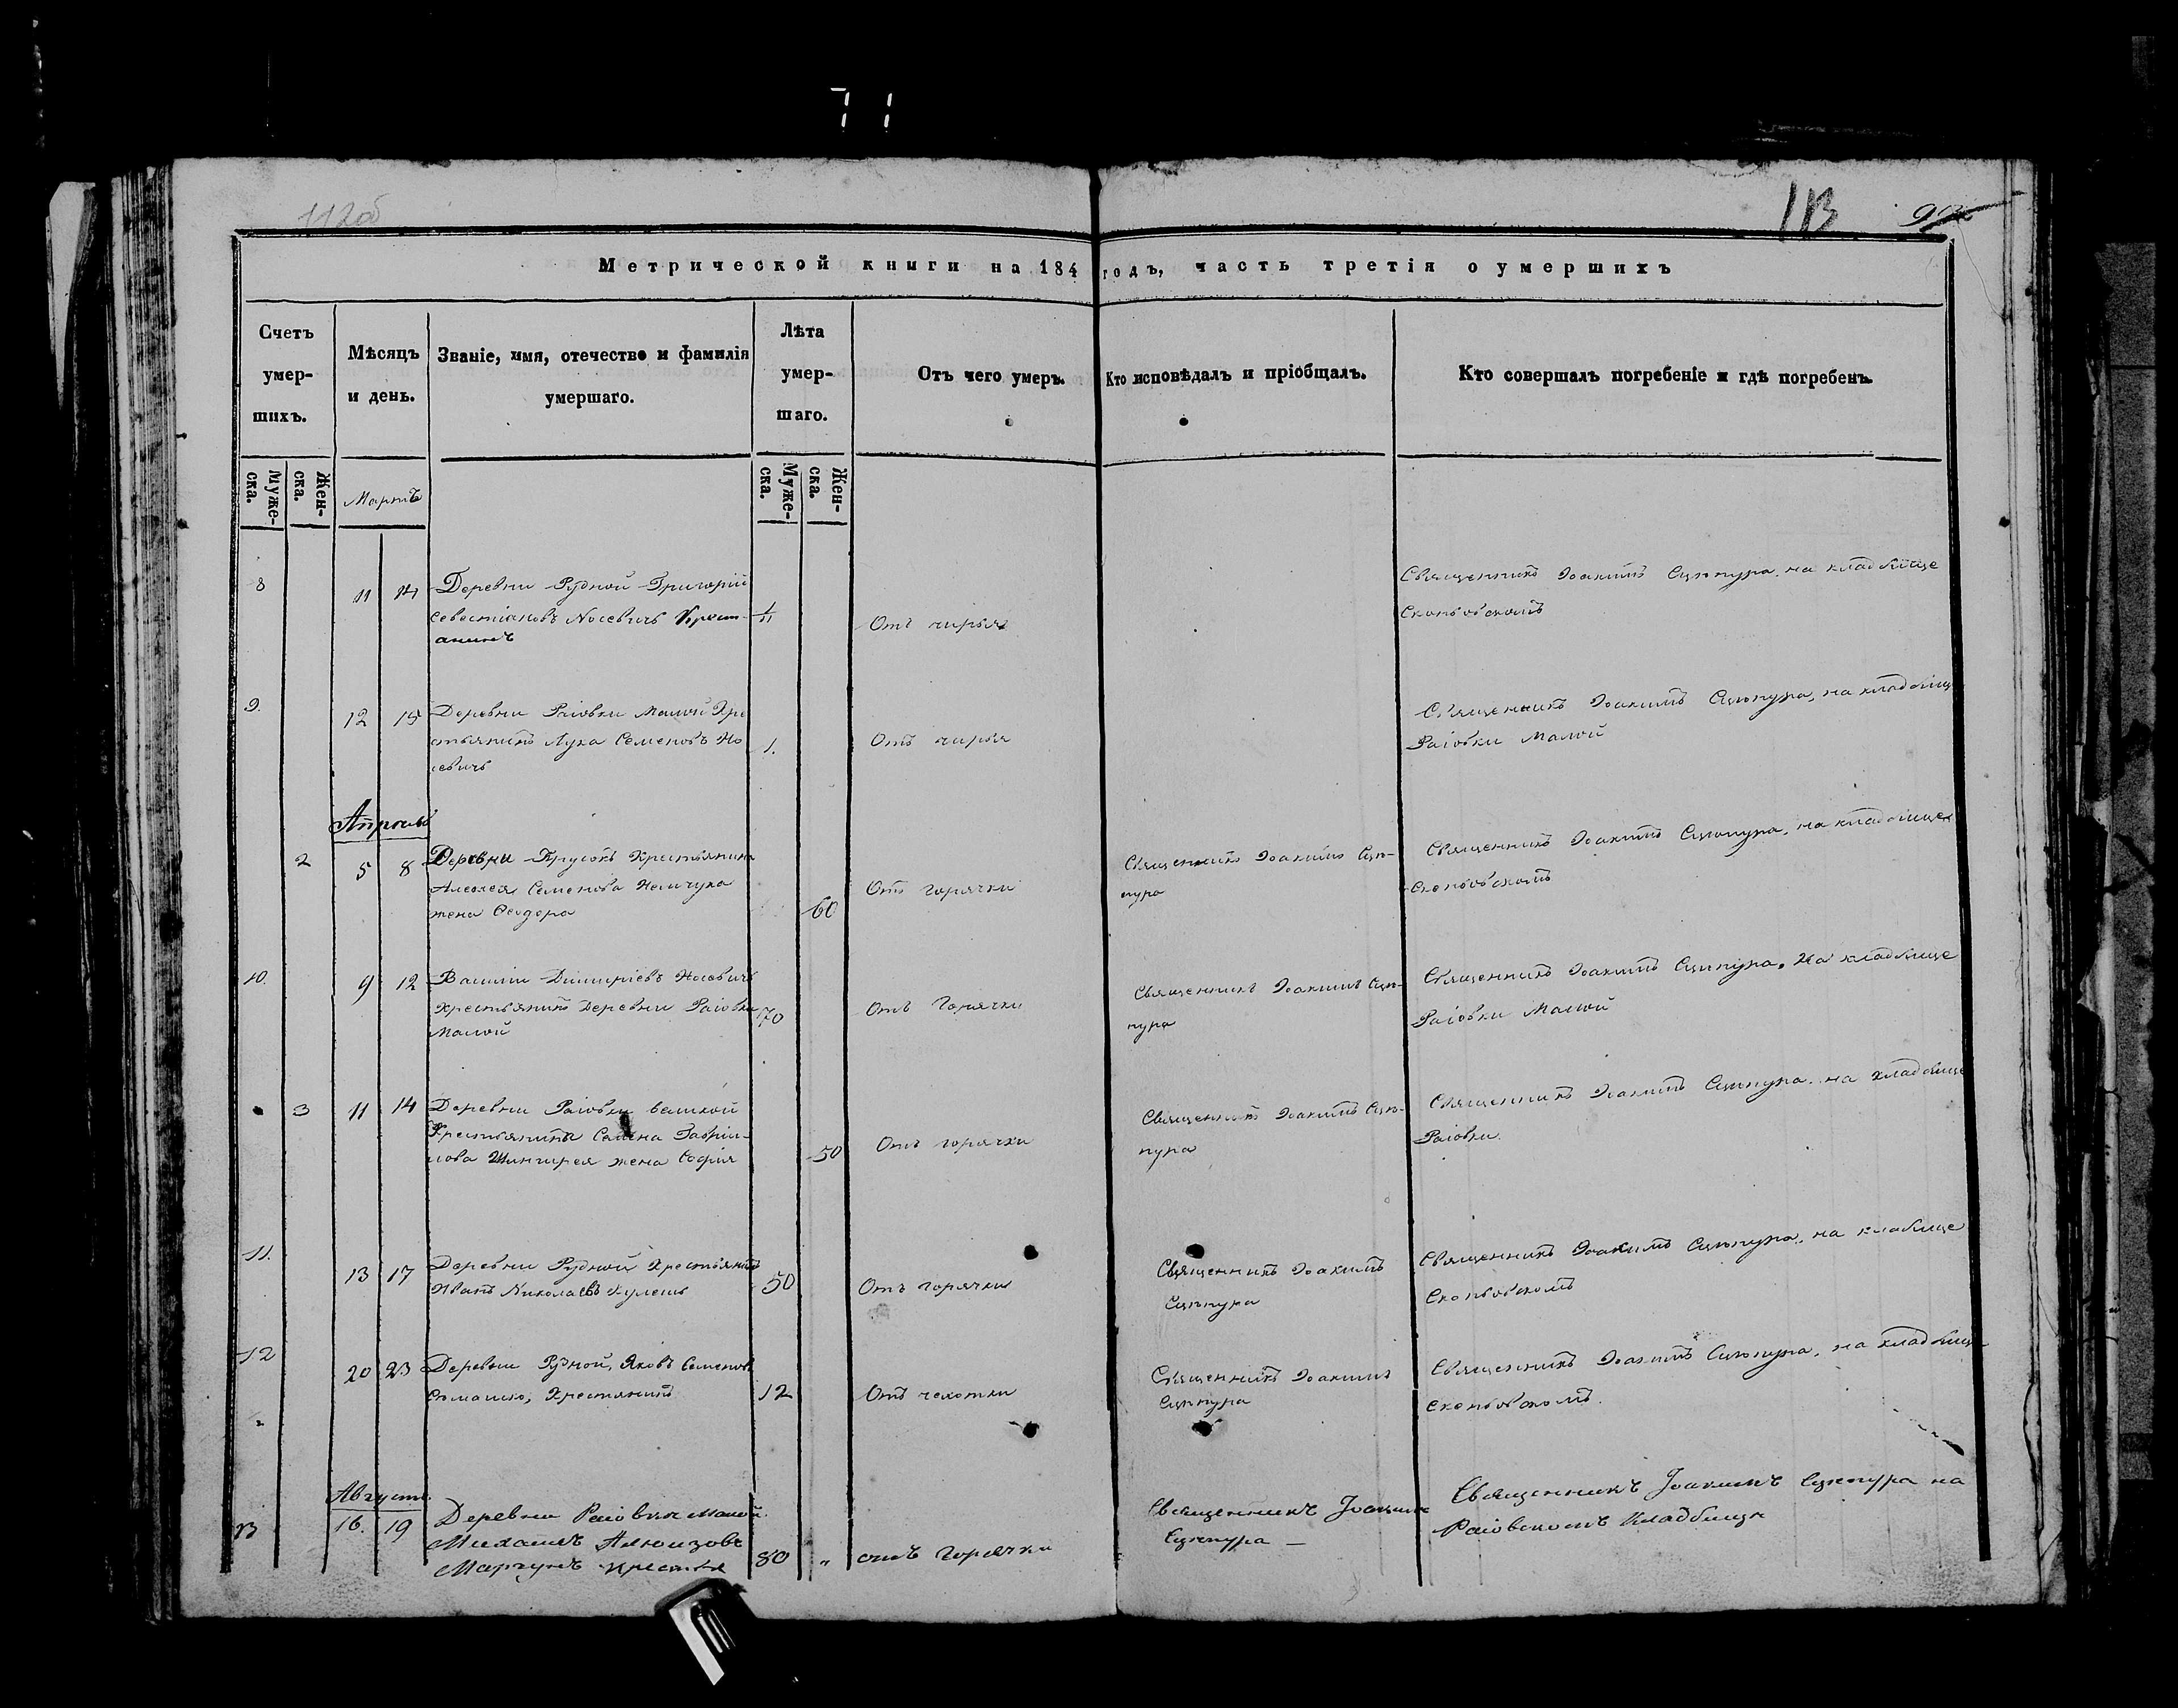 71
112об
113
Метрической книги на 184 годъ, часть третія о умершихъ
Счетъ умер-шихъ.
Мѣсяцъ и день.
Званіе, имя, отечество и фамилія умершаго.
Лѣта умер-шаго.
Отъ чего умеръ.
Кто исповѣдалъ и пріобщалъ.
Кто совершалъ погребеніе и гдѣ погребенъ.
Муже-ска.
Жен-ска.
Мартъ
Муже-ска.
Жен-ска.
8
11 14
Деревни Рудной Григорій
Севестіановъ Носевичъ Крест-
анинъ
Отъ чирья
Священникъ Іоакимъ Сцепура, на кладбище
9.
12 15
Деревни Раіовки Малой Кре
стьянинъ Лука Семеновъ Но
севичъ
1.
Отъ чирья
Священникъ Іоакимъ Сцепура, на кладбищ
Раіовки Малой
Апрель
2
5 8
Деревни Трусокъ Крестьянина
Алексея Семенова
жена Феодора
60
Отъ горячки
Священникъ Іоакимъ Сце-
пура
Священникъ Іоакимъ Сцепура, на кладбище
10.
9 12
Василій Димитріевъ Носевичъ
Крестьянинъ Деревни Раіовки
Малой
70
Отъ Горячки
Священникъ Іоакимъ Сце-
пура
Священникъ Іоакимъ Сцепура, На кладбище
Раіовки Малой
3
11 14
Деревни Раіовки великой
Крестьянина Семена Гаврии-
лова Шингирея жена Софія
50
Отъ горячки
Священникъ Іоакимъ Сце-
пура
Священникъ Іоакимъ Сцепура. на кладбище
Раіовки.
11.
13 17
Деревни Рудной Крестьянинъ
Иванъ Николаевъ Кулешъ
50
Отъ горячки
Священникъ Іоакимъ
Сцепура
Священникъ Іоакимъ Сцепура, на кладбище
12
20 23
Деревни Рудной, Яковъ Семеновъ
Крестянинъ
12
Отъ чехотки
Священникъ Іоакимъ
Сцепура
Священникъ Іоакимъ Сцепура, на кладбище
Августъ
13
16. 19
Деревни Раіовки малой
Михаилъ
крестья
80 „
отъ Горячки
Священникъ Іоакимъ
Сцепура —
Священникъ Іоакимъ Сцепура на
Раіовскомъ Кладбищѣ